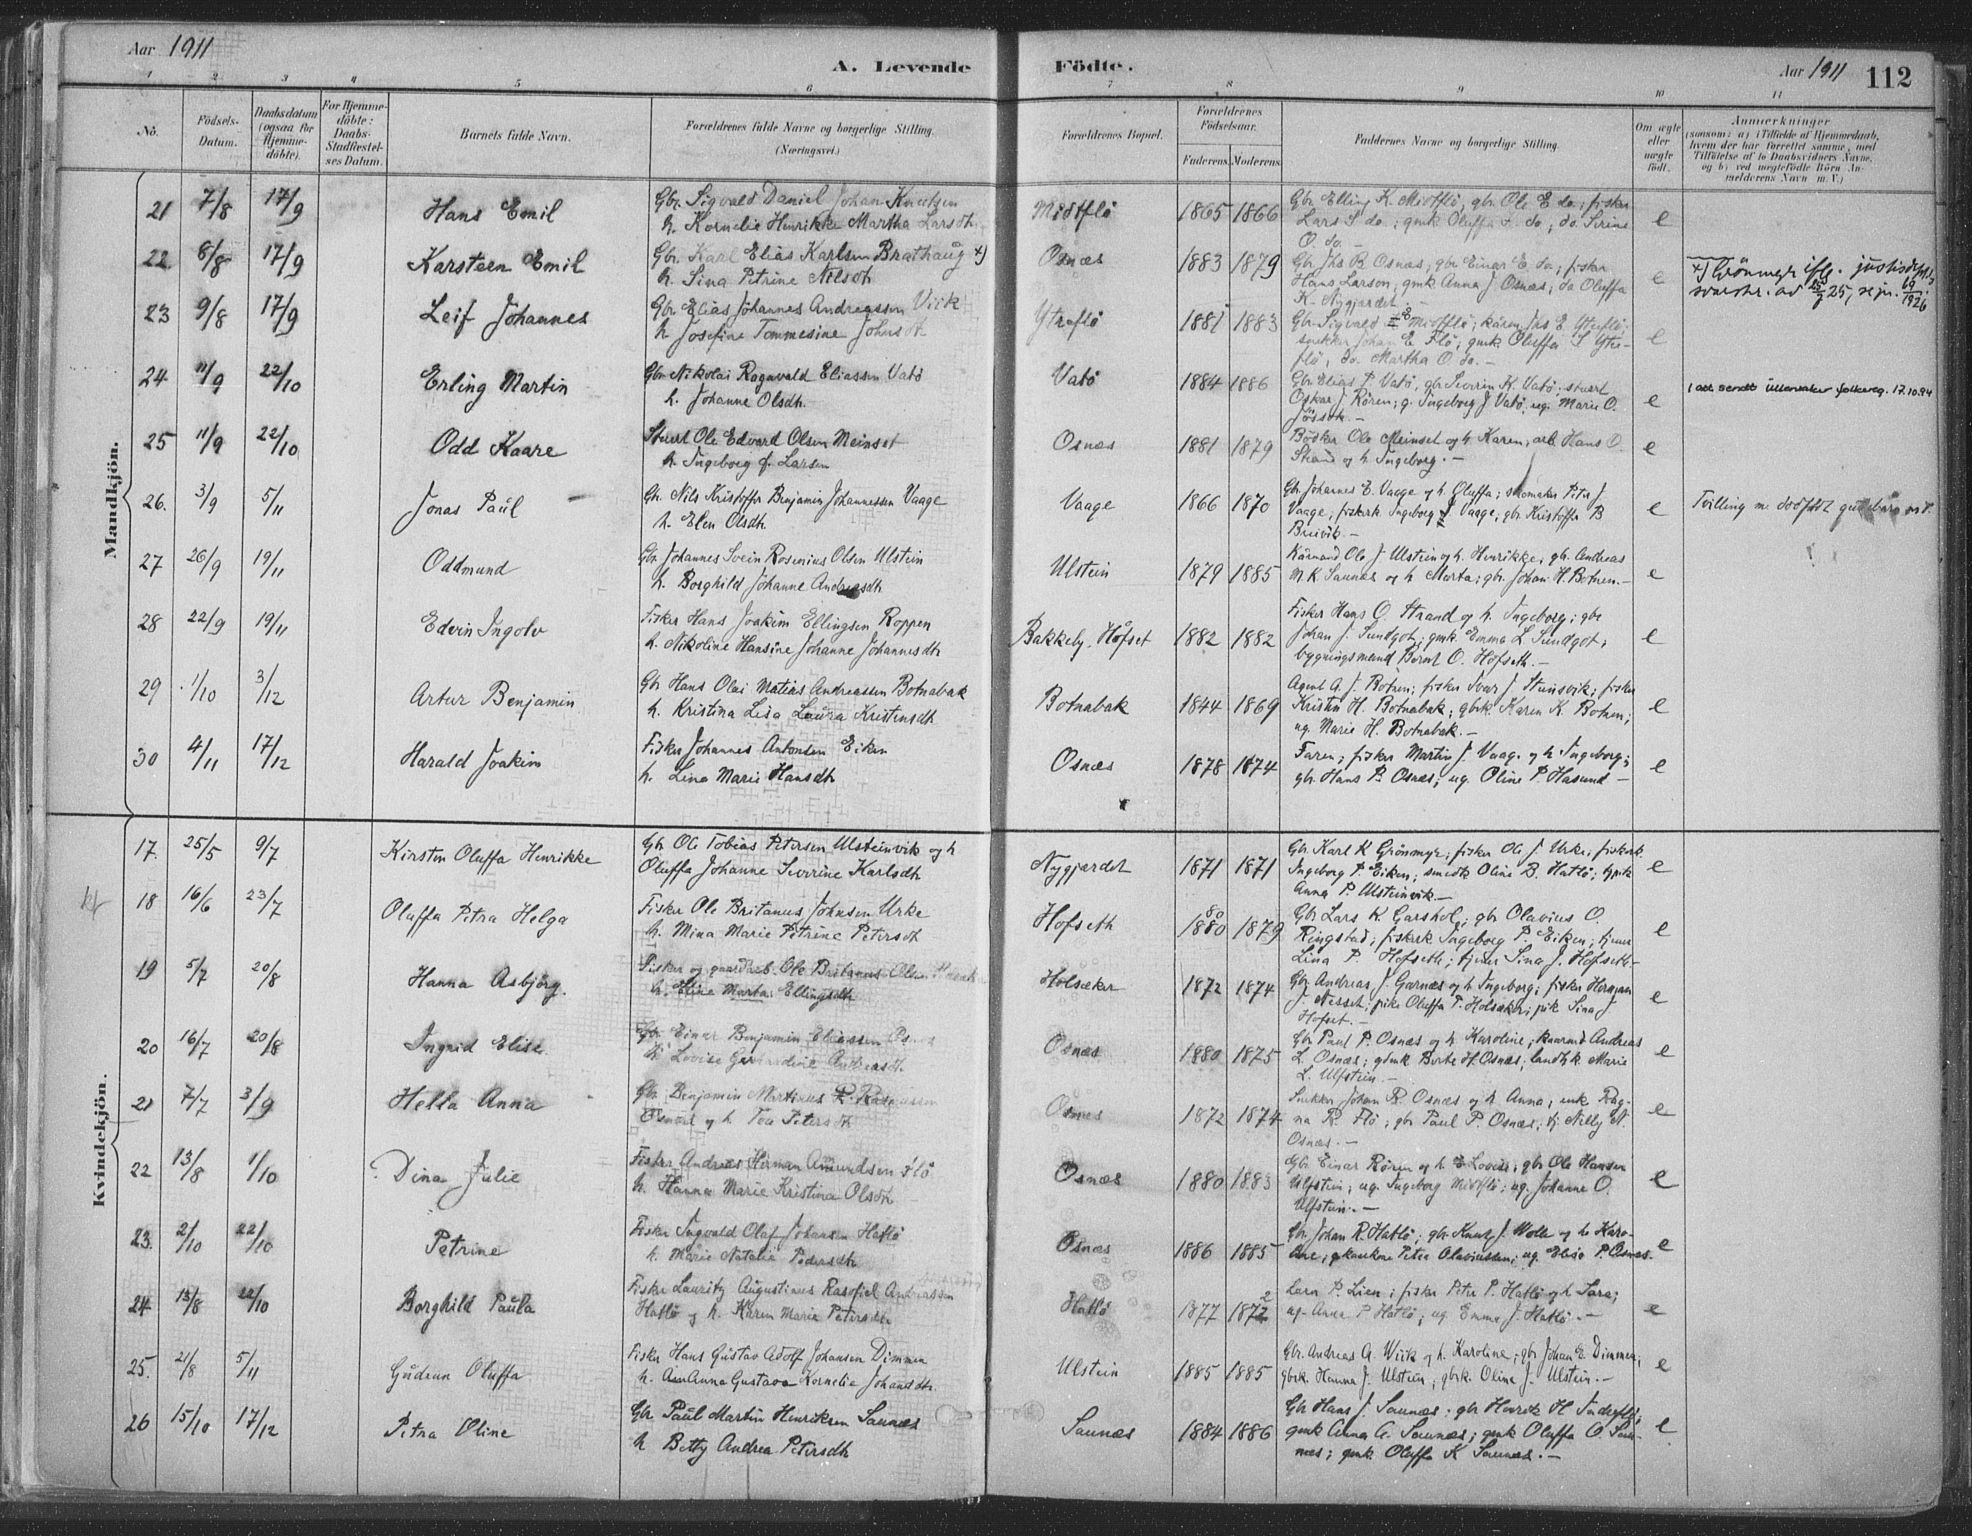 Aar 1911
A. Levende Födte.
Aar 1911 112
1 2 3 4 5 6 7 8 9 10 11
No.
Födsels-Datum.
Daabsdatum (ogsaa for Hjemme-döbte).
For Hjemme-döbte: Daabs-Stadfæstel-ses Datum.
Barnets fulde Navn.
Forældrenes fulde Navne og borgerlige Stilling. (Næringsvei.)
Forældrenes Bopæl.
Forældrenes Födselsaar.
Faderens. Moderens.
Faddernes Navne og borgerlige Stilling.
Om ægte eller uægte födt.
Anmærkninger
(saasom: a) i Tilfælde af Hjemmedaab, hvem der har forrettet samme, med Tilföielse af to Daabsvidners Navne, og b) ved uægtefödte Börn An-melderens Navn m. V.)
Mandkjön.
21 7/8 17/9 Hans Emil
Gbr. Sigvald Daniel Johan Knutsen
h. Kornelie Henrikke Martha Larsdtr.
Midtflö 1865 1866
Gbr Elling K. Midtflö, gbr. Ole E do; fisker
Lars S do.; gmk Oluffa L do, do. Sirine
O. do. e
22 8/8 17/9 Karsteen Emil
Gbr. Karl Elias Karlsen Brathaug x)
h. Sina Petrine Nilsdt
Osnæs 1883 1879
Gbr Jhs B. Osnæs, gbr Einar E. do; fisker
Hans Larsen; gmk Anna J Osnæs, do Oluffa
K. Nygjærdet e
x) Grönmyr iflg. justisdept.s
23 9/8 17/9 Leif Johannes
Gbr. Elias Johannes Andreassen Viik
h Josefine Tommesine Johnsdt
Ytreflö 1881 1883
Gbr Sigvald E Midtflö; kåren Jhs E. Ytreflö;
snekker Johan E Flö; gmk. Oluffa S Ytre-
flö, do. Martha O do. e
24 11/9 22/10 Erling Martin
Gbr Nikolai Ragnvald Eliassen Vatö
h. Johanne Olsdtr.
Vatö 1884 1886
Gbr Elias P. Vatö, gbr Severin K. Vatö; stuert
Oskar J Rören; g. Ingeborg J Vatö, ug. Marie O.
e
1 att. sendt Ullensaker folkereg. 17.10.94
25 11/9 22/10 Odd Kaare
Stuert Ole Edvard Olsen Meinset
h. Ingeborg f. Larsen
Osnæs 1881 1879
Bödker Ole Meinset og h. Karen; arb Hans O.
Strand og h Ingeborg. e
26. 3/9 5/11 Jonas Paul
Gb. Nils Kristoffer Benjamin Johannessen Vaage
h. Elen Olsdtr
Vaage 1866 1870
Gbr Johannes E. Vaage og h. Oluffa; skomaker Peter J.
Vaage, fiskerk Ingeborg J. Vaage, gbr Kristoffer B
e
Tvilling m. dödfödt
27 26/9 19/11 Oddmund
Gbr Johannes Svein Rosenius Olsen Ulstein
h. Borghild Johanne Andreasdt
Ulstein 1879 1885
Kårmand Ole J. Ulstein og h. Henrikke, gbr. Andreas
M K Saunæs og h Marta; gbr Johan H. Botnen. e
28 22/9 19/11 Edvin Ingolv
Fisker Hans Joakim Ellingsen Roppen
h. Nikoline Hansine Johanne Johannesdt
Bakkeby, Höfset 1882 1882
Fisker Hans O. Strand og h. Ingeborg; gbr
Johan J. Sundgot; gmk. Emma L Sundgot;
bygningsmand Bernt O. Höfseth. e
29 1/10 3/12 Artur Benjamin
Gbr Hans Olai Matias Andreassen Botnabak
h. Kristina Lisa Laura Kristensdt
Botnabak 1844 1869
Agent A. J. Botnen; fisker Ivar J. Steinsvik; fisker
Kristen H. Botnabak; gbrk. Karen K. Botnen;
ug. Marie H. Botnabak. e
30 4/11 17/12 Harald Joakim
Fisker Johannes Antonsen Eiken
h. Lina Marie Hansdtr
Osnæs 1878 1874
Faren; fisker Martin J. Vaage. og h Ingeborg;
gbr Hans P. Osnæs; ug. Oline P. Hasund e
Kvindekjön.
17. 25/5 9/7 Kirsten Oluffa Henrikke
Gbr Ole Tobias Petersen Ulsteinvik og h
Oluffa Johanne Severine Karlsdtr
Nygjærdet 1871 1871
Gbr. Karl K Grönmyr; fisker Ole J Urke; fiskerk.
Ingeborg P. Eiken; smedk Oline B. Hatlö; tjpik
Anna P. Ulsteinvik. e
18 16/6 23/7 Oluffa Petra Helga
Fisker Ole Britanus Johnsen Urke
h. Mina Marie Petrine Petersdt
Hofseth 1880 80 1879
Gbr Lars K Garshol; gbr Olavius O.
Ringstad; fiskerk Ingeborg P. Eiken; tjener
Lina P. Hofseth; tjener Sina J. Hofseth. e
19 5/7 20/8 Hanna Asbjörg.
Fisker og gaardarb. Ole Britanus Olsen
h. Eline Marta Ellingsdt
Holsækr 1872 1874
Gbr Andreas J. Garnæs og h Ingeborg; fisker Herman
J. Nesset, pike Oluffa P. Holsækr; pik Sina J
Hofset. e
20 16/7 20/8 Ingrid Elise
Gbr. Einar Benjamin Eliassen Osnæs
h Lovise Gertrudine Antonsdt
Osnæs 1880 1875
Gbr Paul P. Osnæs og h Karoline; kaarmd Andreas
L. Osnæs; gmk Berte H. Osnæs, landhk Marie
L. Ulstein e
21 7/7 3/9 Hella Anna
Gbr. Benjamin Martinus
Osnæs og h Petersdt
Osnæs 1872 1874
Snekker Johan R. Osnæs og h Anna; enk Rag-
na R. Flö; gbr Paul P. Osnæs; tj. Nelly N.
Osnæs. e
22 13/8 1/10 Dina Julie
Fisker Andreas Herman Amundsen Flö
h. Hanna Marie Kristina Olsdtr
Osnæs 1880 1883
Gbr. Einar Rören og h E Lovise; gbr Ole Hansen
Ulstein; ug. Ingeborg Midtflö; ug. Johanne O.
Ulstein. e
23. 2/10 22/10 Petrine
Fisker Ingvald Olaf Johansen Hatlö
h. Marie Natalie Pedersdt
Osnæs 1886 1885
Gbr. Johan R. Hatlö; gbr Knut J. Wolle og h. Karo-
line; Petra Olaviussen; ug. Elise P. Osnæs. e
24 13/8 22/10 Borghild Paula
Fisker Lauritz Augustinus Rasofiel Andreassen
Hatlö og h. Karen Marie Petersdtr
Hatlö 1877 1872
Lars P. Lien; fisker Peter P. Hatlö og h Sara;
ug. Anna P Hatlö; ug. Emma J. Hatlö. e
25. 21/8 5/11 Gudrun Oluffa
Fisker Hans Gustav Adolf Johansen Dimmen
h. Anna Gustava Kornelie Johansdtr.
Ulstein 1885 1885
Gbr. Andreas A. Wiik og h. Karoline, gbr Johan E. Dimmen;
gbrk. Hanna J. Ulstein; gbrk. Oline J. Ulstein. e
26 15/10 17/12 Petra Oline
Gbr Paul Martin Henriksen Saunæs
h Betty Andrea Petersdtr
Saunæs 1884 1886
Gbr Hans J. Saunæs; gbr Henrik H Inderflö;
gmk Anna A. Saunæs; gmk Oluffa O. Sau-
næs; gmk. Oluffa K Saunæs. e